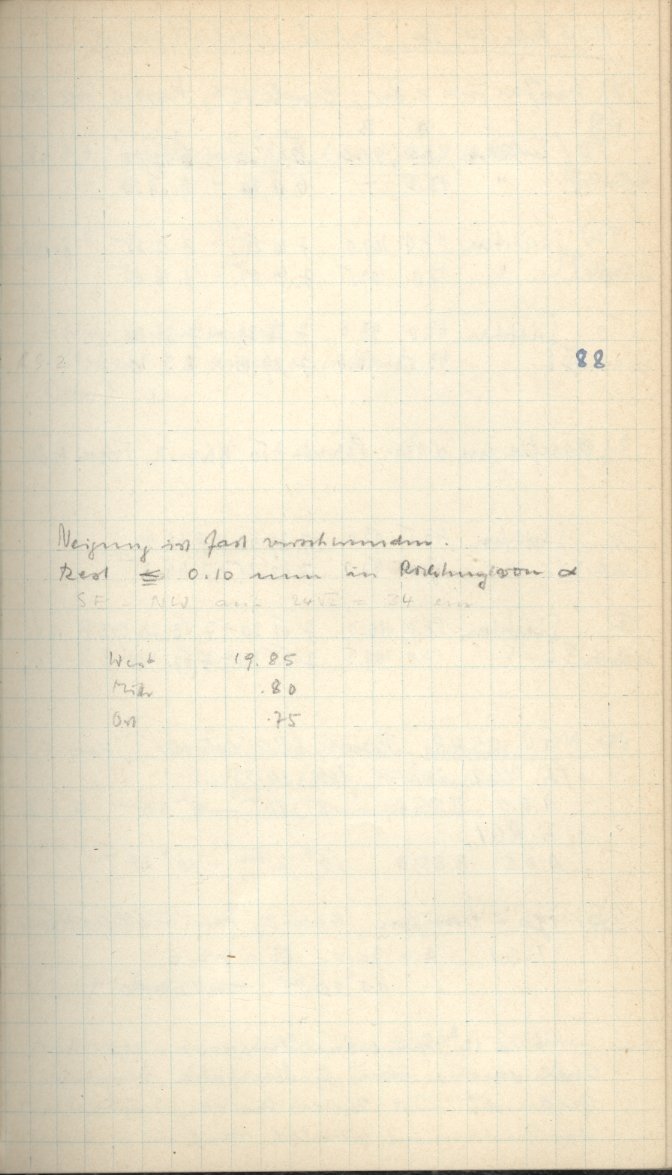 88
Neigung ist fast verschwunden.
Rest ≦ 0.10 mm in Richtung von α
SE - NW auf 24 = 34 cm
West 19.85
Mitte .80
Ost .75